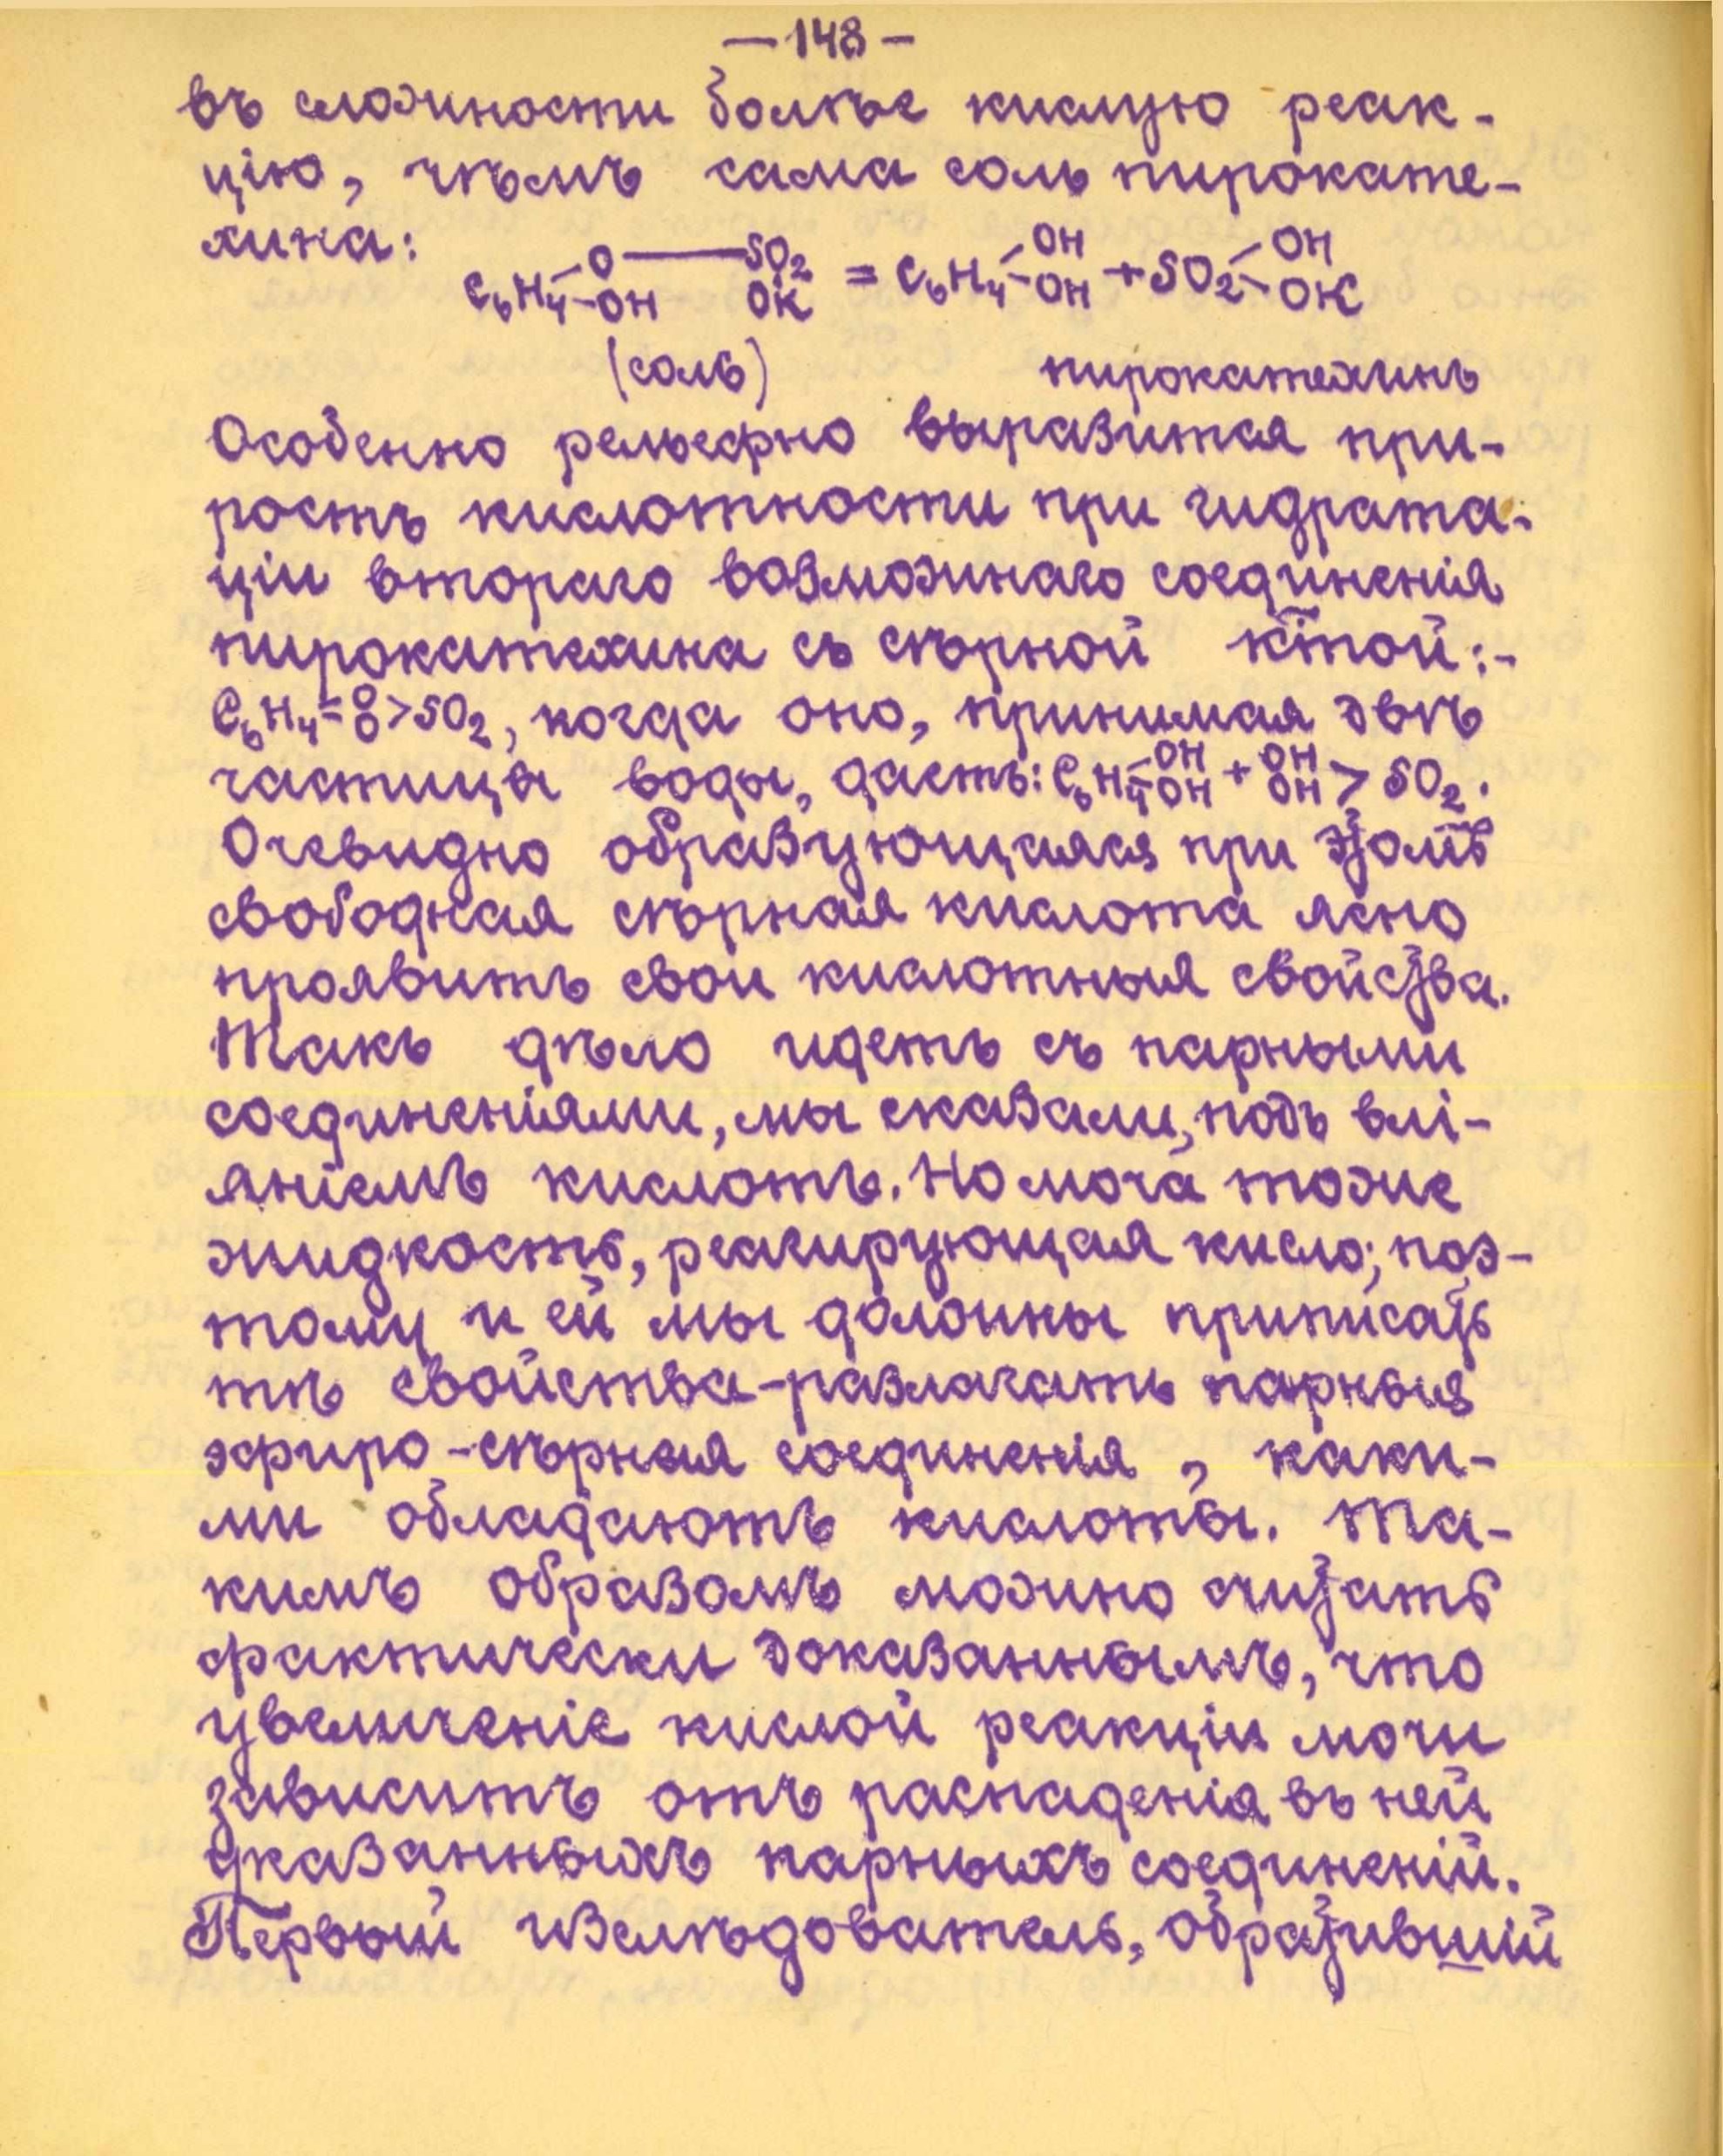 —148—
въ сложности болѣе кислую реак-
цію, чѣмъ сама соль пирокате-
хина:
C₆H₄-O—SO₂ -OH OK = C₆H₄-OH -OH + SO₂-OH -OK
(соль) пирокатехинъ
Особенно рельефно выразится при-
ростъ кислотности при гидрата-
ціи втораго возможнаго соединенія
пирокатехина съ сѣрной к̅той:-
C₆H₄=O O>SO₂, когда оно, принимая двѣ
частицы воды, дастъ: C₆H₄-OH -OH + OH OH > SO₂.
Очевидно образующаяся при этомъ
свободная сѣрная кислота ясно
проявитъ свои кислотныя свойства.
Такъ дѣло идетъ съ парными
соединеніями, мы сказали, подъ влі-
яніемъ кислотъ. Но моча тоже
жидкость, реагирующая кисло; поэ-
тому и ей мы должны приписать
тѣ свойства-разлагать парныя
эфиро-сѣрныя соединенія, каки-
ми обладаютъ кислоты. Та-
кимъ образомъ можно считать
фактически доказаннымъ, что
увеличеніе кислой реакціи мочи
зависитъ отъ распаденія въ ней
указанныхъ парныхъ соединеній.
Первый изслѣдователь, обратившій